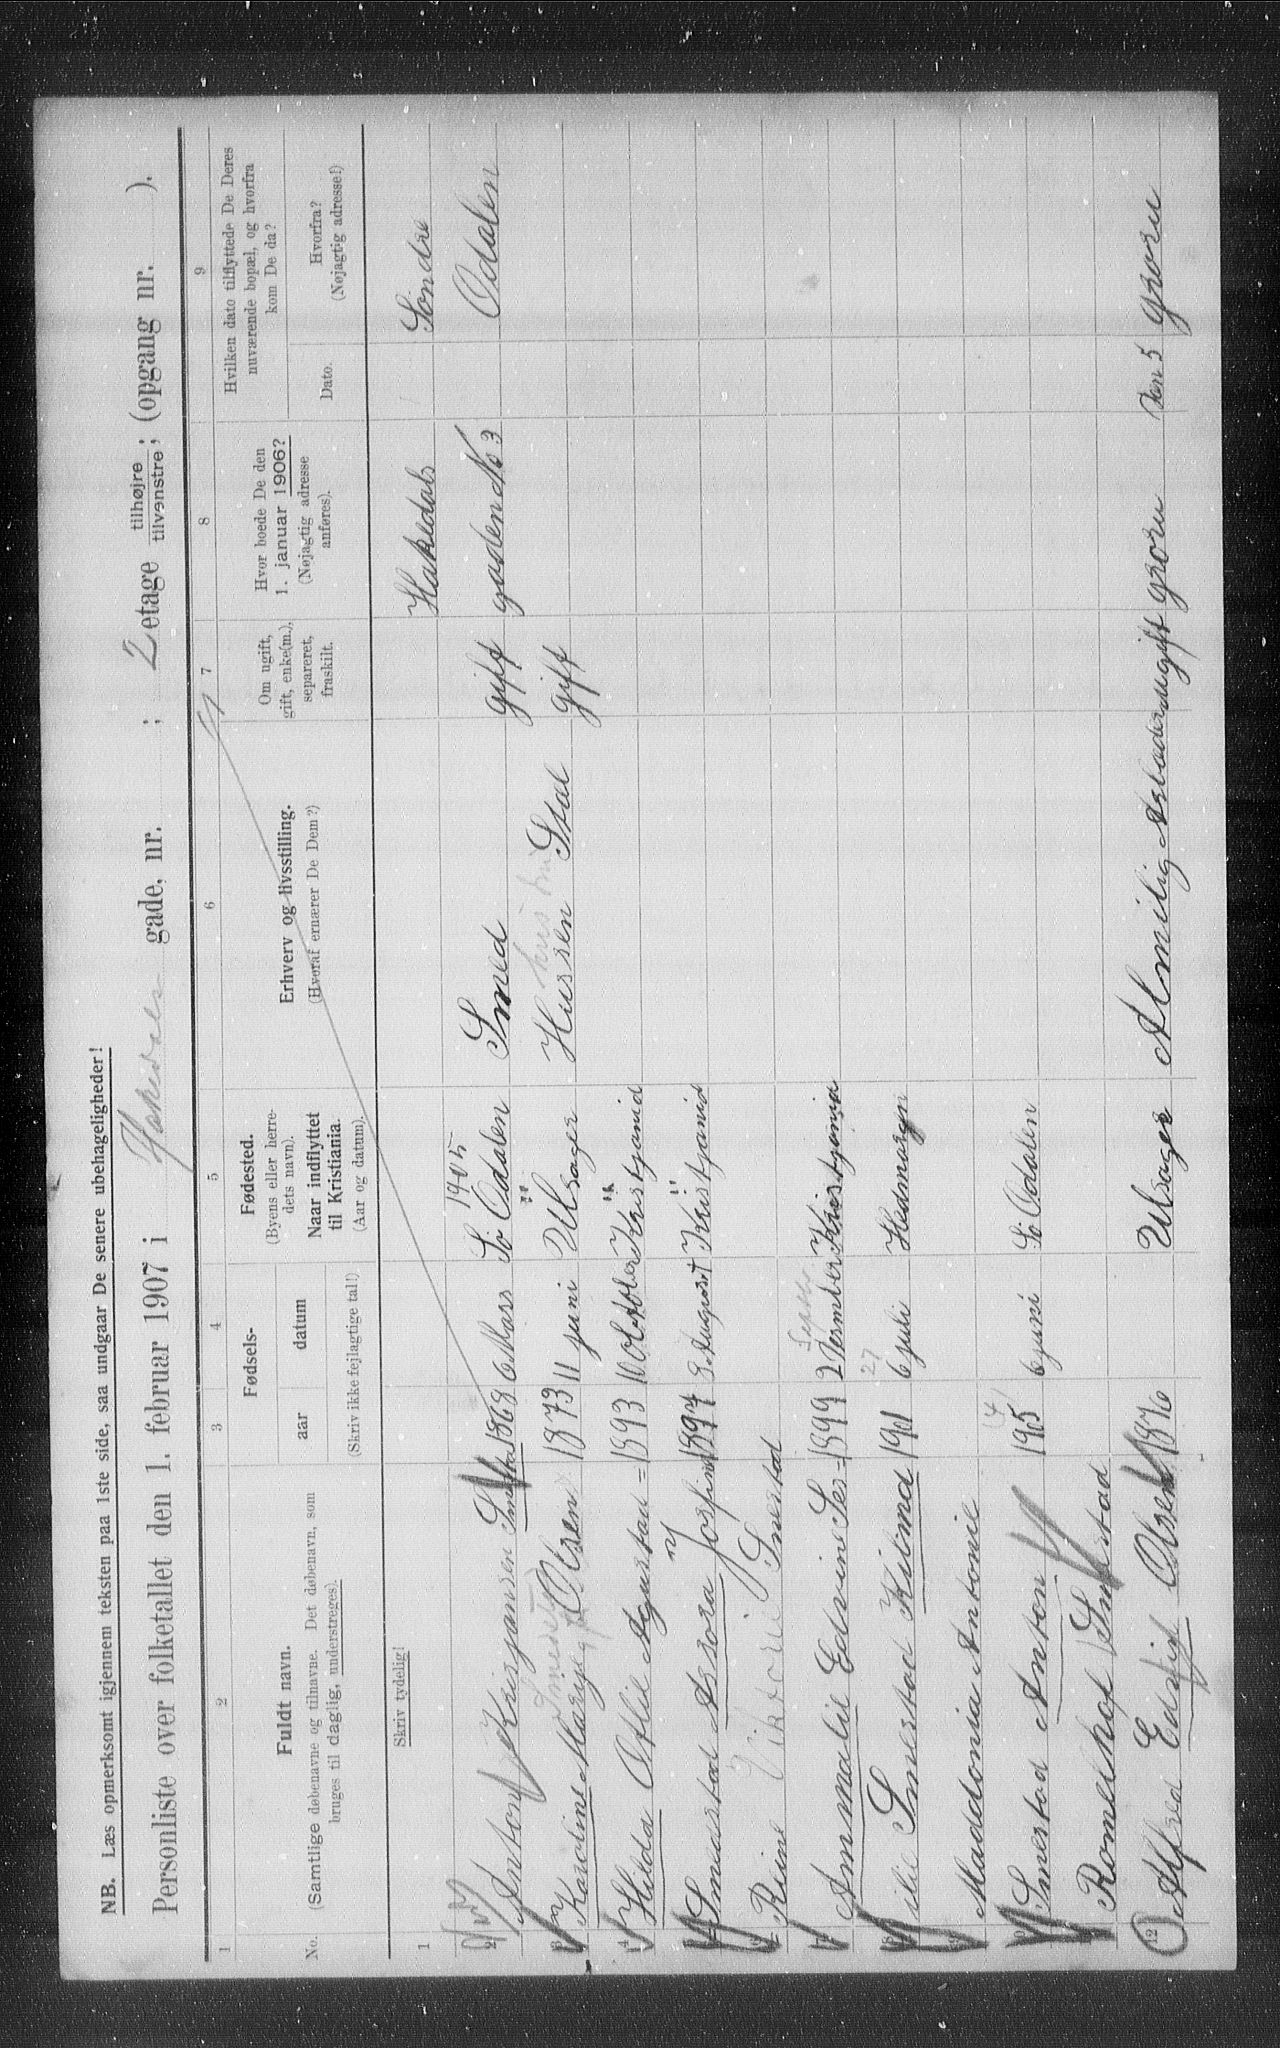 NB. Læs opmerksomt igjennem teksten paa 1ste side, saa undgaar De senere ubehageligheder!
Personliste over folketallet den 1. februar 1907 i Hakedals gade, nr. ; 2 etage tilhøjre tilvenstre; (opgang nr. ).
1 2 3 4 5 6 7 8 9
No.
Fuldt navn.
(Samtlige døbenavne og tilnavne. Det døbenavn, som
bruges til daglig, understreges).
Fødsels-
aar datum
(Skriv ikke fejlagtige tal!)
Fødested.
(Byens eller herre-
dets navn).
Naar indflyttet
til Kristiania.
(Aar og datum).
Erhverv og livsstilling.
(Hvoraf ernærer De Dem?)
Om ugift,
gift, enke(m.),
separeret,
fraskilt.
Hvor boede De den
1. januar 1906?
(Nøjagtig adresse
anføres).
Hvilken dato tilflyttede De Deres
nuværende bopæl, og hvorfra
kom De da?
Dato.
Hvorfra?
(Nøjagtig adresse!)
Skriv tydelig!
1 Hakedals Søndre
2 Anton Krisjansen 1868 6 Mars 1905 Sø Odalen Smed gift gaden No 3 Odalen
3 Karoline Marie Olsen 1873 11 juni Ulsager Hussen Stal gift
4 Hilda Otilie 1893 10 Oktober Kristjania
Smedstad Assora Josfine 1897 9 August Kristjania
Viktoria Smestad
7 Ammalie Edvine 1899 2 Kristjania
8 Smestad Hilma 1901 6 juli Hedmargn
Maddonia Antonie
10 Smestad Anton 1905 6 juni Sø Odalen
Smestad
12 Alfred Olsen 1876 Ulsager Almilig Arbeder ugift groru den 5 groru